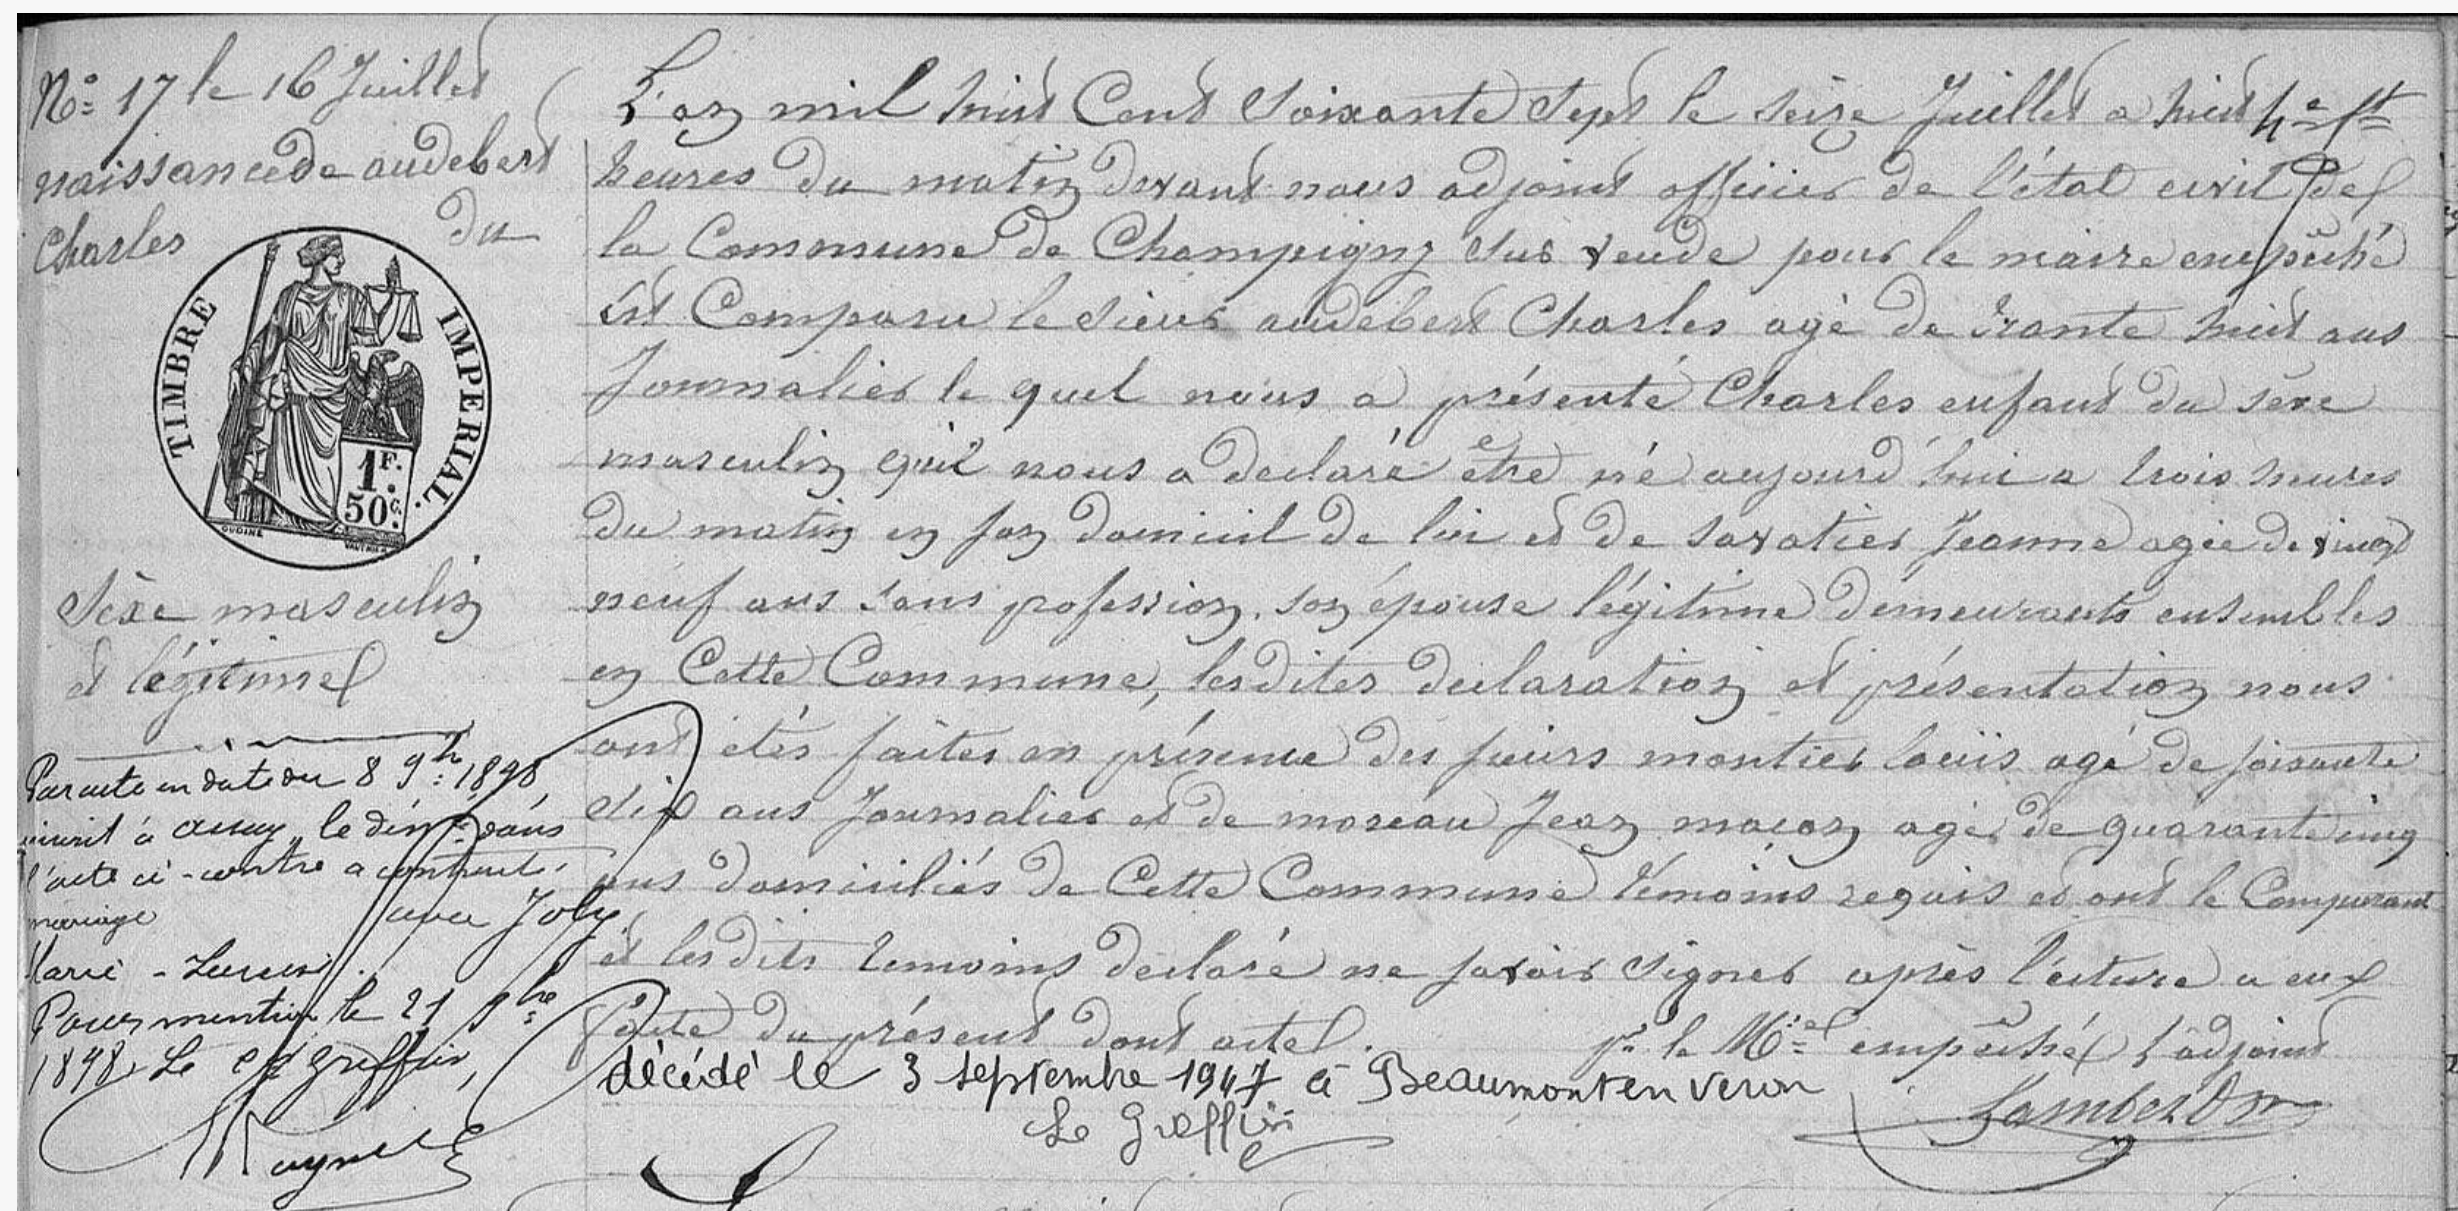 N° 17 le 16 Juillet
naissance de audebert
Charles du
TIMBRE IMPERIAL.
1F.
50c.
OUDINÉ
Sèxe masculin
et légitime
Par acte en date du 8 9bre 1898
inscrit à le dén dans
l'acte ci-contre a contracté
mariage avec Joly
Marie -
Pour mention le 21 9bre
1898 Le greffier,
L'an mil huit Cent Soixante Sept le seize Juillet a huit
heures du matin devant nous adjoint officier de l'état civil de
la Commune de Champigny sur veude pour le maire empêché
est Comparu le sieur audebert Charles agé de trante huit ans
Journalier le quel nous a présenté Charles enfant du sèxe
masculin qui nous a declaré être né aujourd'hui a trois heures
du matin en son domicil de lui et de savatier Jeanne agée de vingt
neuf ans sans profession. son épouse légitime demeurants ensembles
en Cette Commune, les dites declaration et présentation nous
ont étés faites en présence des sieurs montier louis agé de soisante
dix ans Journalier et de moreau Jean macon agé de quarante cinq
ans domiciliés de Cette Commune témoins requis et ont le Comparant
et les dits temoins declaré ne savoir signer après l'ecture a eux
faite du présent dont acte.
pr le M.re empêché l'adjoint
décédé le 3 septembre 1947 à Beaumont en Veron
Le Greffier
Lambert